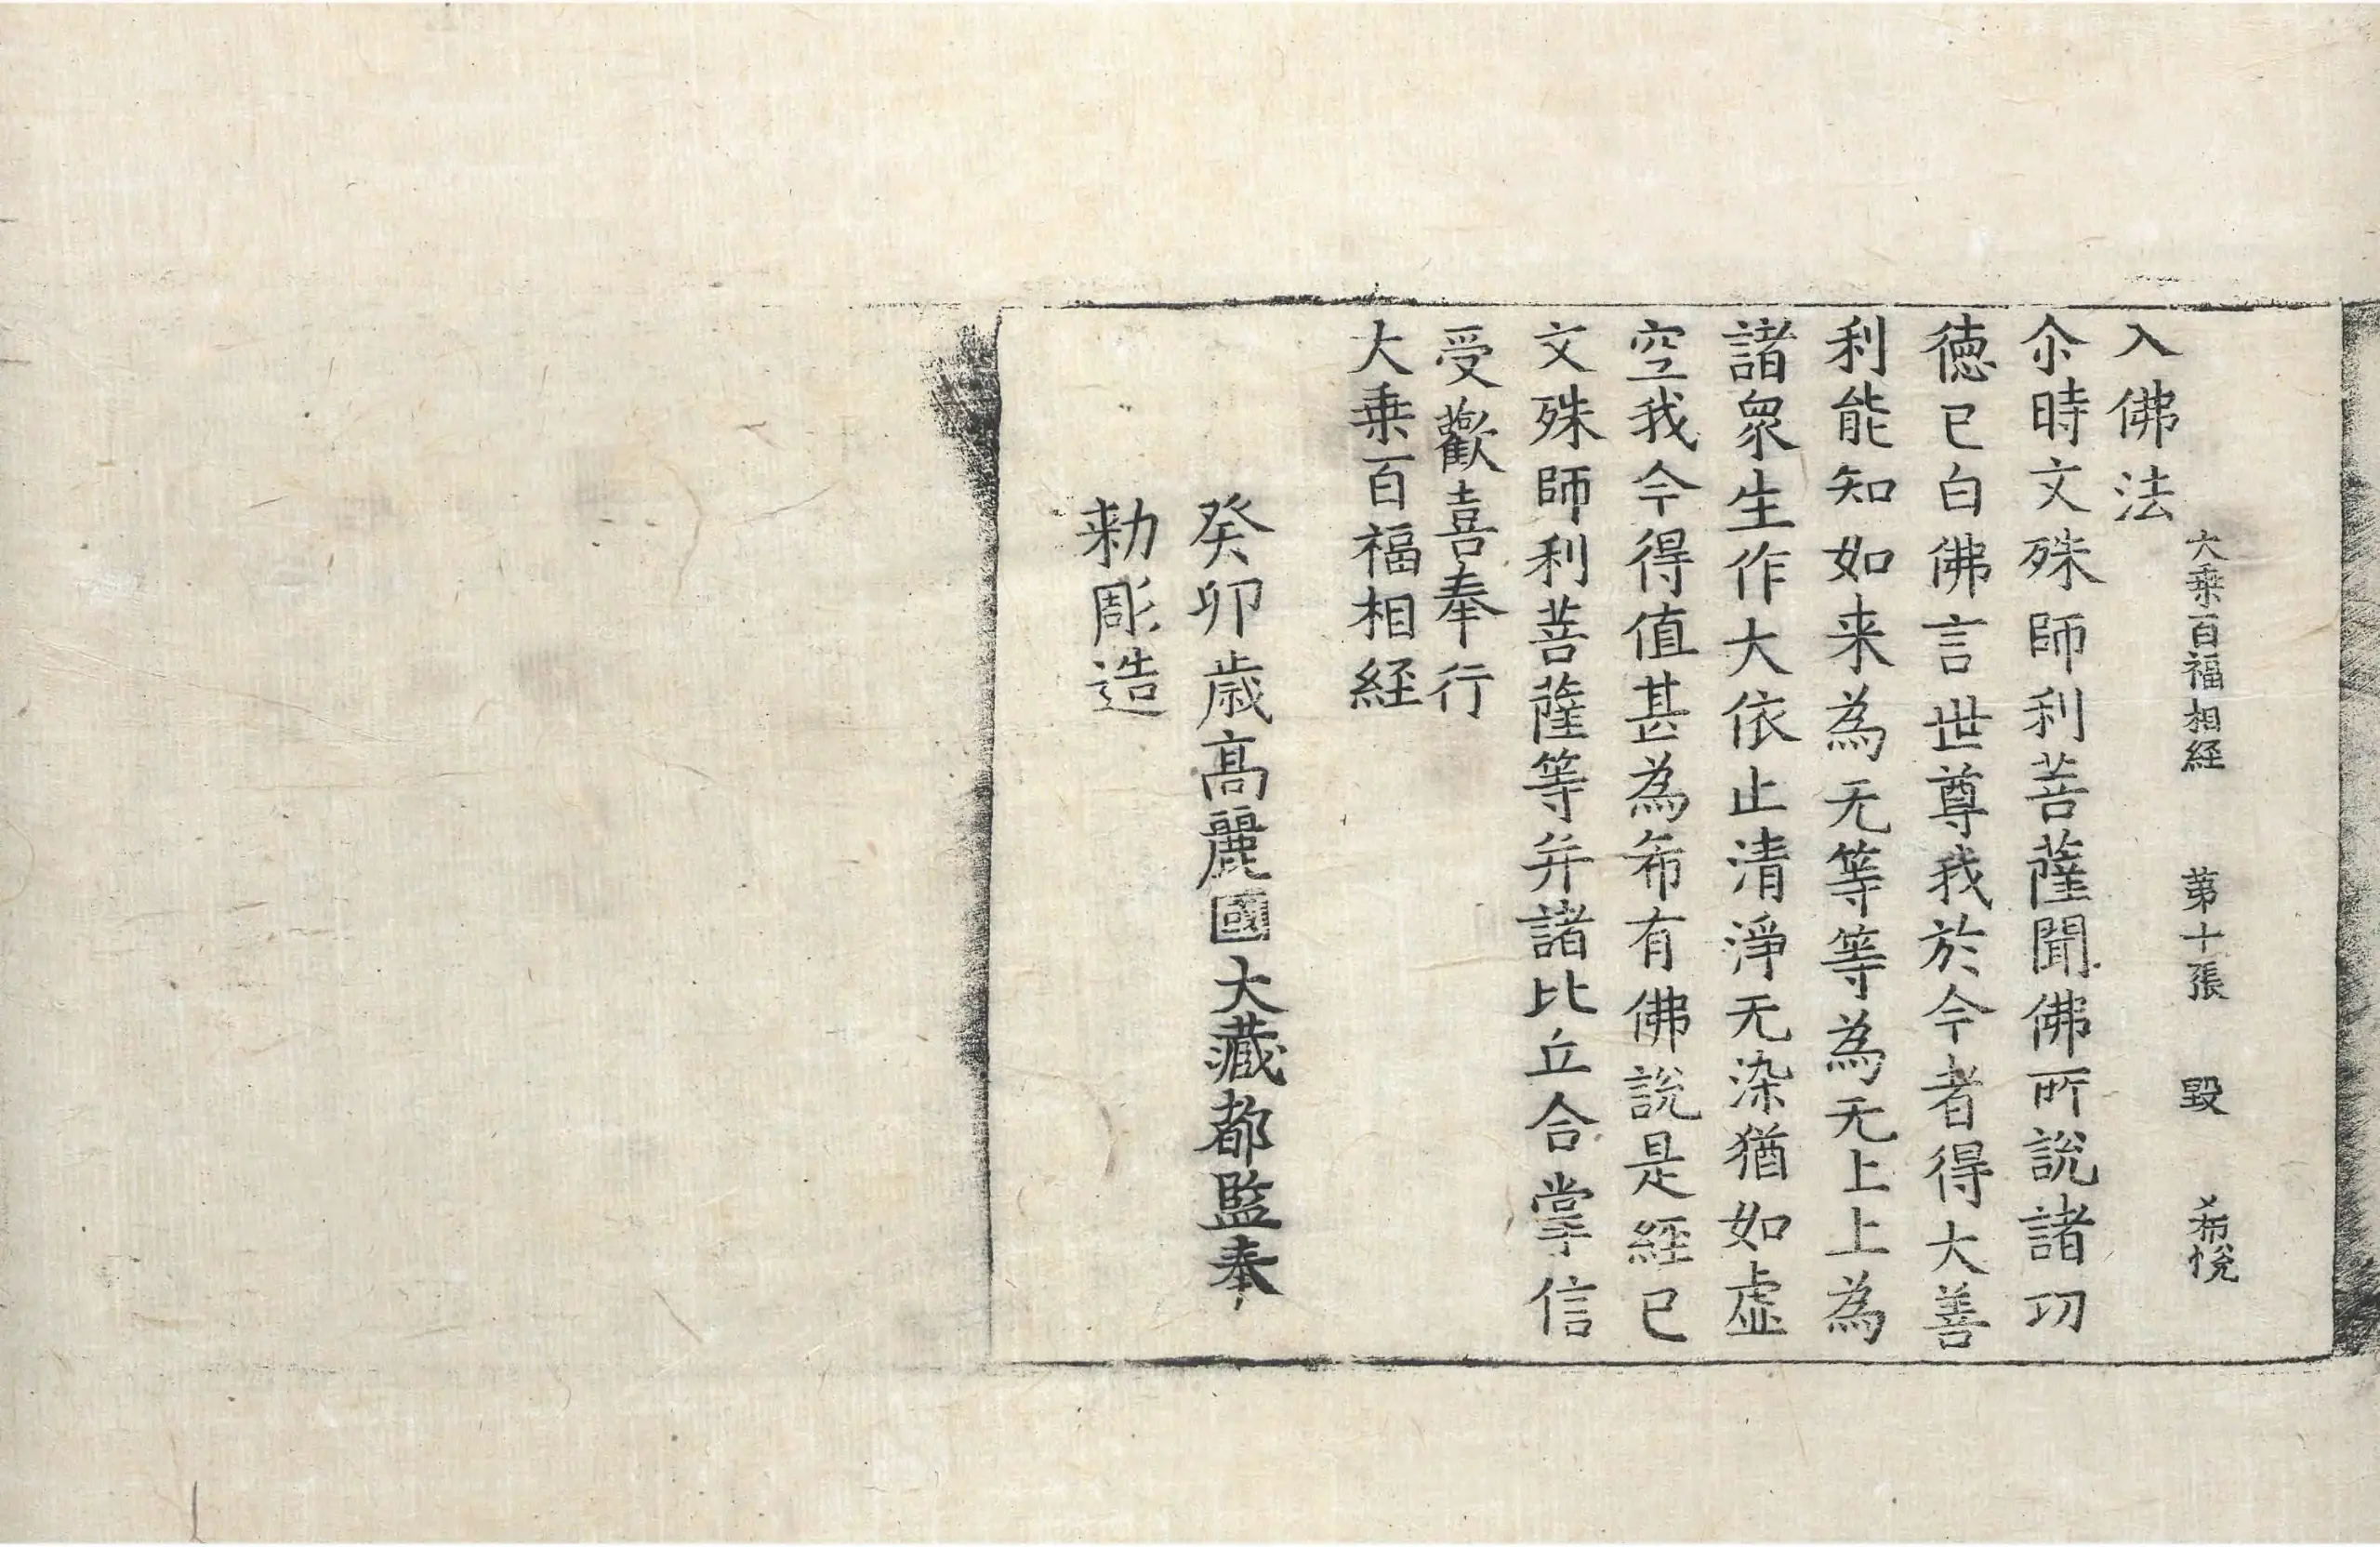 大乗百福相経 第十張 毀 希悅
入佛法
尒時文殊師利菩薩聞佛所說諸功
徳已白佛言世尊我於今者得大善
利能知如来為无等等為无上上為
諸衆生作大依止清淨无染猶如虛
空我今得值甚為希有佛說是經已
文殊師利菩薩等并諸比丘合掌信
受歡喜奉行
大乗百福相経
癸卯歳高麗國大藏都監奉
勑彫造